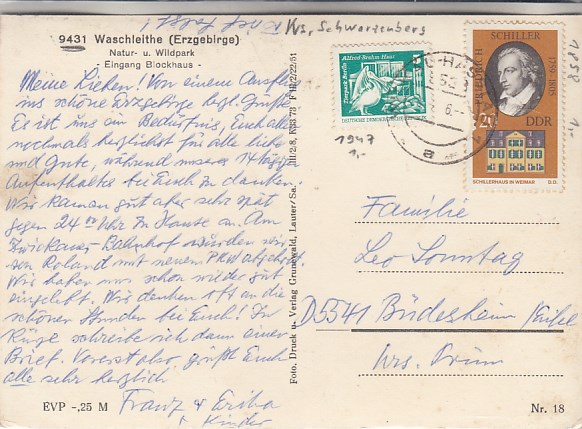 Krs. Schwarzenberg
9431 Waschleithe (Erzgebirge)
Natur- u. Wildpark
- Eingang Blockhaus -
Meine Lieben! Von einem Ausflug
ins schöne Erzgebirge herzl. Grüße
Es ist uns ein Bedürfnis, Euch allen
nochmals herzlichst für alle Liebe
und Güte, während unseres 14 tägigen
Aufenthaltes bei Euch zu danken.
Wir kamen gut aber sehr spät
gegen 24 00 Uhr zu Hause an. Am
Zwickauer Bahnhof wurden wir
von Roland mit neuem PKW abgeholt.
Wir haben uns schon wieder gut
eingelebt. Wir denken oft an die
schönen Stunden bei Euch! In
Kürze schreibe ich dann einen
Brief. Vorerst also grüßt Euch
alle sehr herzlich
Franz & Erika
+ Kinder
EVP -,25 M
Foto, Druck u. Verlag Grunewald, Lauter/Sa.
III/2/8, K33/73
Alfred Brehm Haus
Tierpark Berlin
5
1947
1,-
a
FRIEDRICH
SCHILLER
1759-1805
DDR
20
SCHILLERHAUS IN WEIMAR
1858
1,-
Familie
Leo Sonntag
D5541 Büdesheim/Eifel
Krs. Prüm
Nr. 18